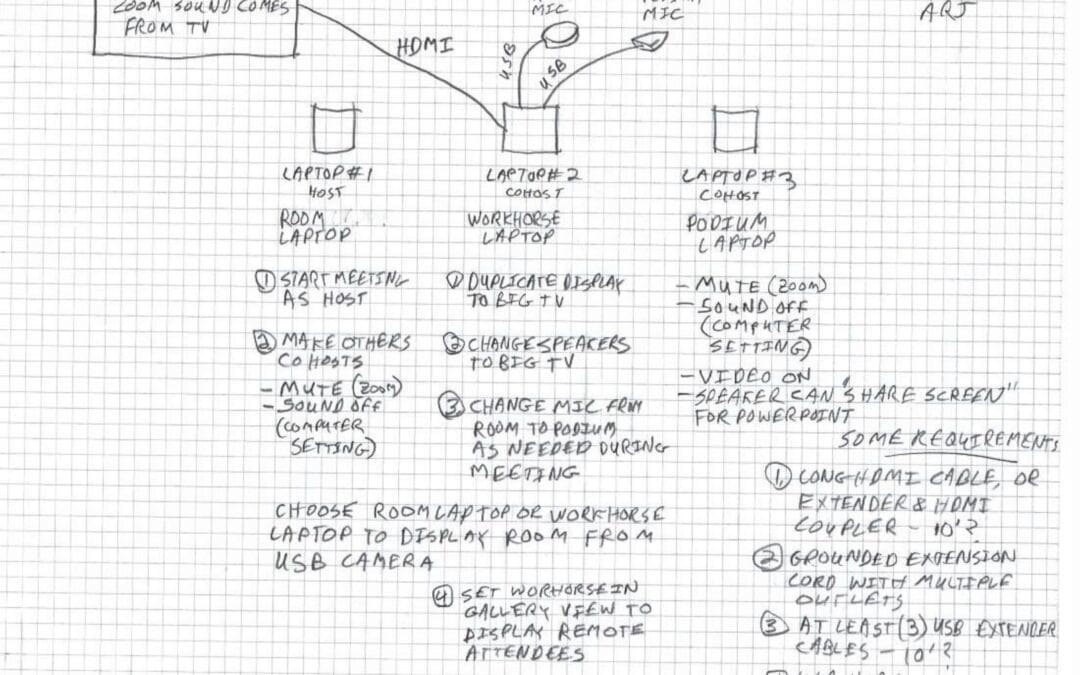 ZOOM SOUND COMES
FROM TV
HDMI
USB
USB
MIC
MIC
ART
LAPTOP #1
HOST
ROOM
LAPTOP
① START MEETING
AS HOST
② MAKE OTHERS
COHOSTS
- MUTE (ZOOM)
- SOUND OFF
(COMPUTER
SETTING)
LAPTOP #2
COHOST
WORKHORSE
LAPTOP
① DUPLICATE DISPLAY
TO BIG TV
② CHANGE SPEAKERS
TO BIG TV
③ CHANGE MIC FROM
ROOM TO PODIUM
AS NEEDED DURING
MEETING
CHOOSE ROOM LAPTOP OR WORKHORSE
LAPTOP TO DISPLAY ROOM FROM
USB CAMERA
④ SET WORHORSE IN
GALLERY VIEW TO
DISPLAY REMOTE
ATTENDEES
LAPTOP #3
COHOST
PODIUM
LAPTOP
- MUTE (ZOOM)
- SOUND OFF
(COMPUTER
SETTING)
- VIDEO ON
- SPEAKER CAN "SHARE SCREEN"
FOR POWERPOINT
SOME REQUIREMENTS
① LONG HDMI CABLE, OR
EXTENDER & HDMI
COUPLER - 10'?
② GROUNDED EXTENSION
CORD WITH MULTIPLE
OUTLETS
③ AT LEAST (3) USB EXTENDER
CABLES - 10'?